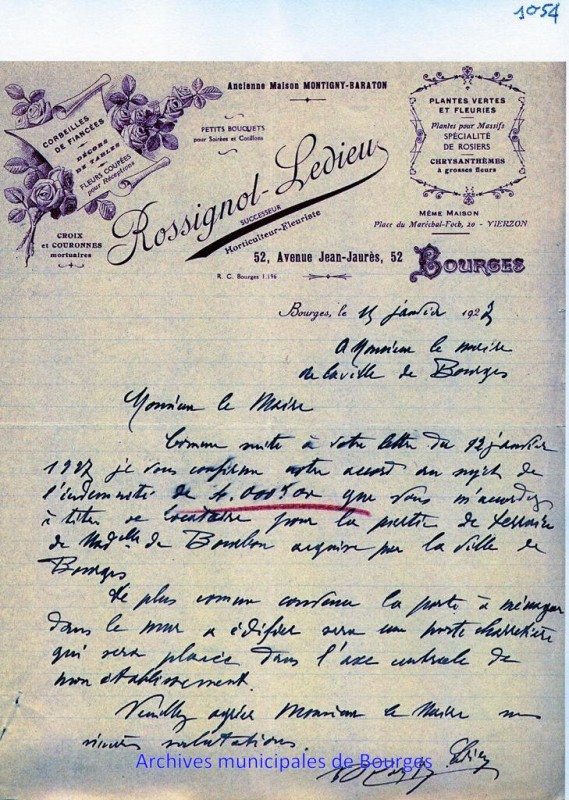 1054
Ancienne Maison MONTIGNY-BARATON
CORBEILLES
DE FIANCÉES
DÉCORS
DE TABLES
FLEURS COUPÉES
pour Réceptions
CROIX
et COURONNES
mortuaires
PETITS BOUQUETS
pour Soirées et Cotillons
Rossignol-Ledieu
SUCCESSEUR
Horticulteur-Fleuriste
PLANTES VERTES
ET FLEURIES
Plantes pour Massifs
SPÉCIALITÉ
DE ROSIERS
CHRYSANTHÈMES
A grosses fleurs
MÊME MAISON
Place du Maréchal-Foch, 20 - VIERZON
52, Avenue Jean-Jaurès, 52
BOURGES
R. C. Bourges 1.196
Bourges, le 15 janvier 1927
A Monsieur le maire
de la ville de Bourges
Monsieur le Maire
Comme suite à votre lettre du 12 janvier
1927 je vous confirme notre accord au sujet de
l'indemnité de 4.000 que vous m'accordez
à titre de locataire pour la partie de terrain
de de Bourbon acquise par la ville de
Bourges
De plus comme convenu la porte à ménager
dans le mur à édifier sera une porte charretière
qui sera placée dans l'axe centrale de
mon établissement.
Veuillez agréer Monsieur le Maire mes
sincères salutations.
Archives municipales de Bourges